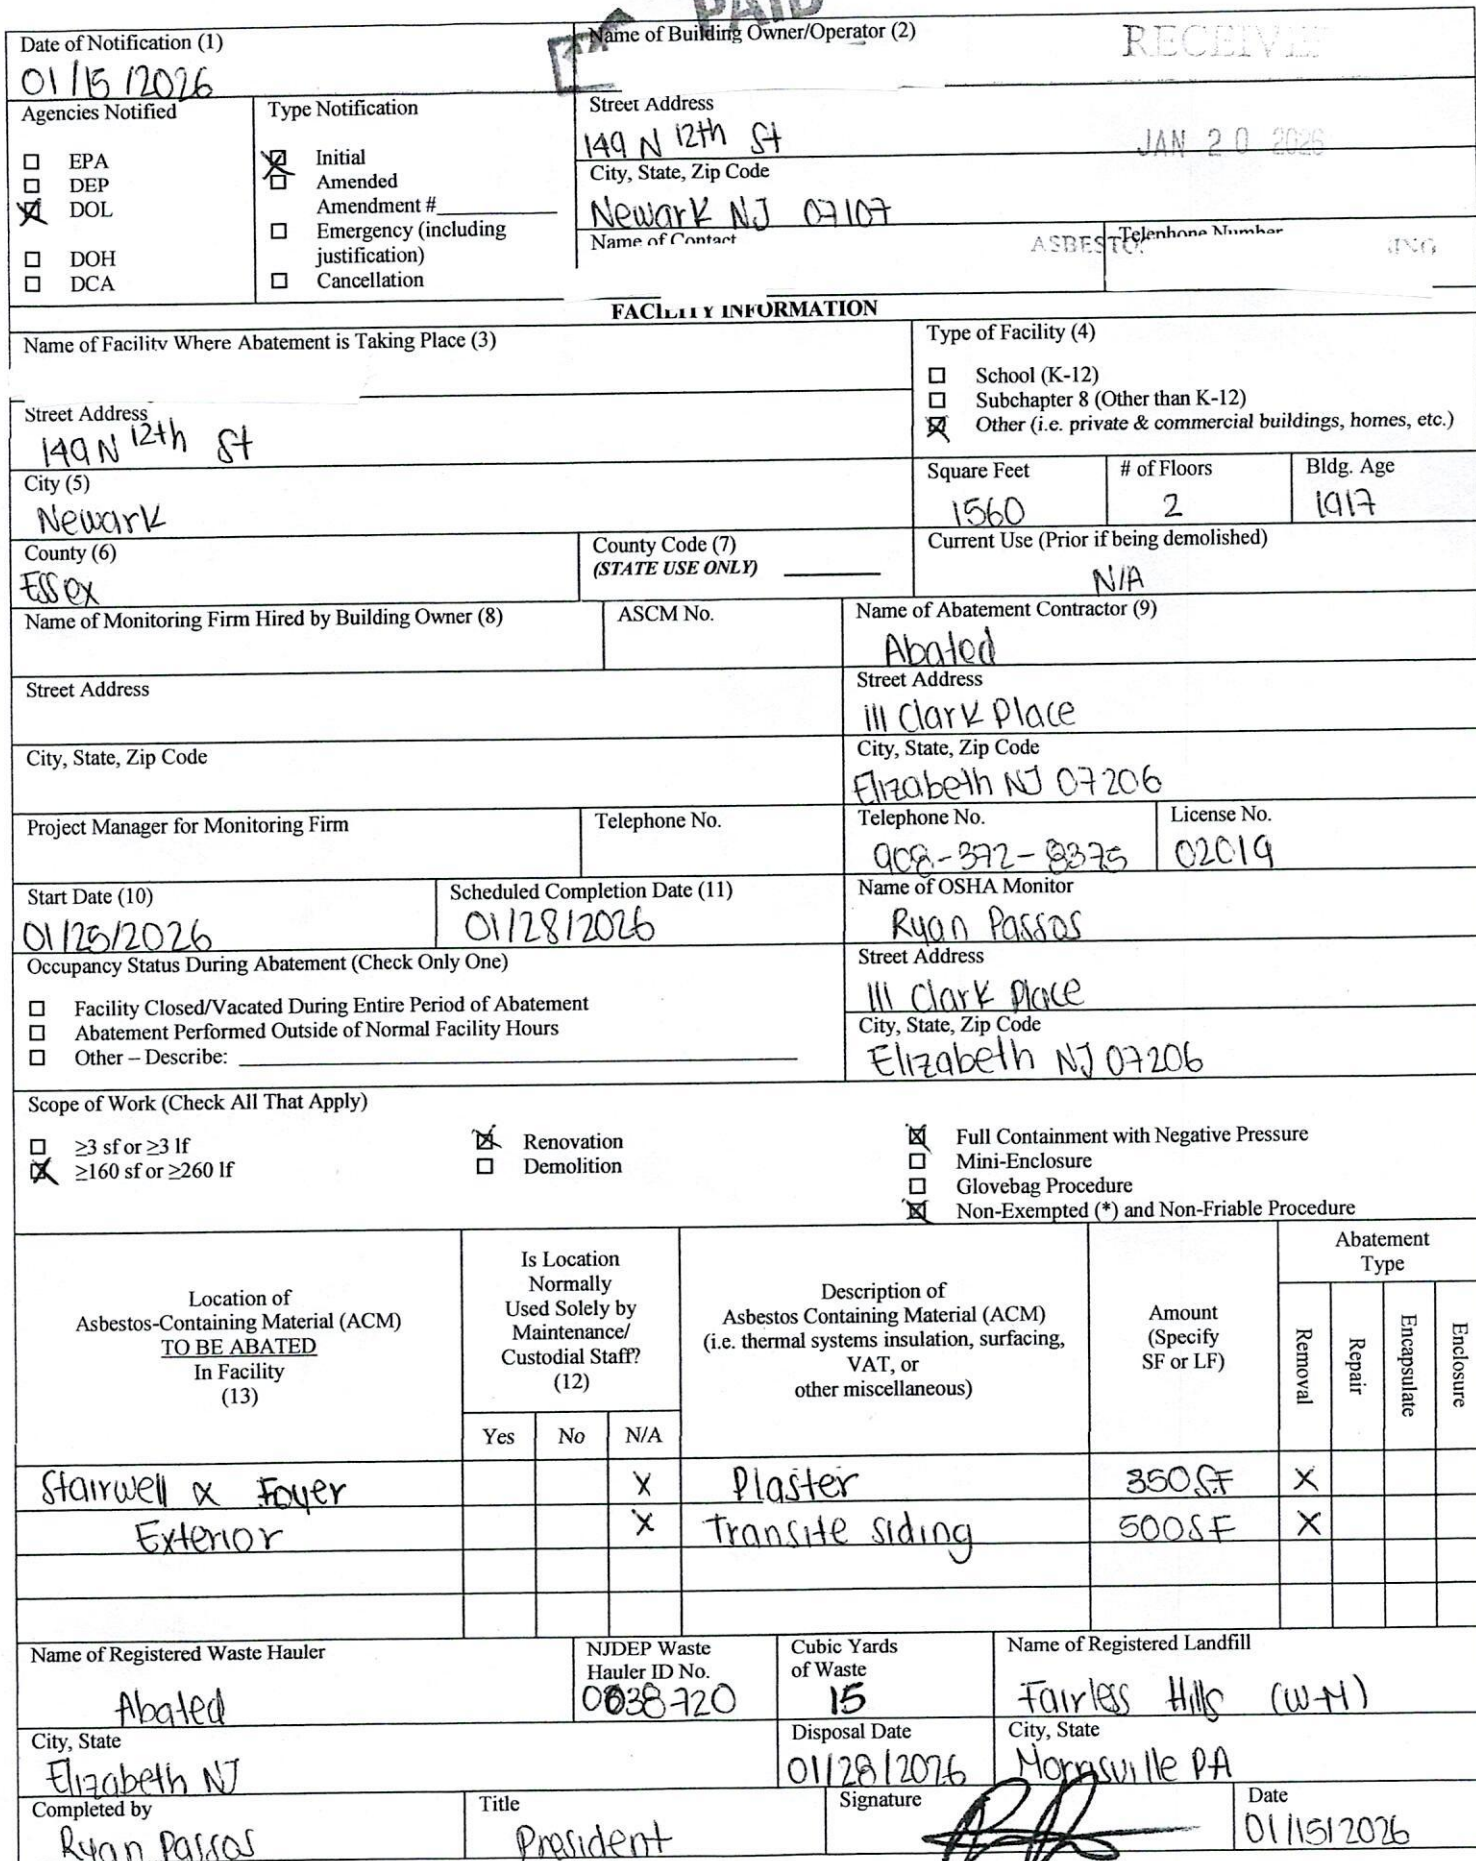 PAID
Date of Notification (1)
01/15/2026
Name of Building Owner/Operator (2)
RECEIVED
Agencies Notified
☐ EPA
☐ DEP
☒ DOL
☐ DOH
☐ DCA
Type Notification
☒ Initial
☐ Amended
Amendment #
☐ Emergency (including
justification)
☐ Cancellation
Street Address
149 N 12th St
JAN 20 2026
City, State, Zip Code
Newark NJ 07107
Name of Contact
Telephone Number
FACILITY INFORMATION
Name of Facility Where Abatement is Taking Place (3)
Type of Facility (4)
☐ School (K-12)
☐ Subchapter 8 (Other than K-12)
☒ Other (i.e. private & commercial buildings, homes, etc.)
Street Address
149 N 12th St
City (5)
Newark
Square Feet
1560
# of Floors
2
Bldg. Age
1917
County (6)
Essex
County Code (7)
(STATE USE ONLY)
Current Use (Prior if being demolished)
N/A
Name of Monitoring Firm Hired by Building Owner (8)
ASCM No.
Name of Abatement Contractor (9)
Abated
Street Address
Street Address
111 Clark Place
City, State, Zip Code
City, State, Zip Code
Elizabeth NJ 07206
Project Manager for Monitoring Firm
Telephone No.
Telephone No.
908-372-8375
License No.
02019
Start Date (10)
01/25/2026
Scheduled Completion Date (11)
01/28/2026
Name of OSHA Monitor
Ryan Passos
Occupancy Status During Abatement (Check Only One)
☐ Facility Closed/Vacated During Entire Period of Abatement
☐ Abatement Performed Outside of Normal Facility Hours
☐ Other – Describe:
Street Address
111 Clark Place
City, State, Zip Code
Elizabeth NJ 07206
Scope of Work (Check All That Apply)
☐ ≥3 sf or ≥3 lf
☒ ≥160 sf or ≥260 lf
☒ Renovation
☐ Demolition
☒ Full Containment with Negative Pressure
☐ Mini-Enclosure
☐ Glovebag Procedure
☒ Non-Exempted (*) and Non-Friable Procedure
Location of
Asbestos-Containing Material (ACM)
TO BE ABATED
In Facility
(13)
Is Location
Normally
Used Solely by
Maintenance/
Custodial Staff?
(12)
Yes No N/A
Description of
Asbestos Containing Material (ACM)
(i.e. thermal systems insulation, surfacing,
VAT, or
other miscellaneous)
Amount
(Specify
SF or LF)
Abatement
Type
Removal
Repair
Encapsulate
Enclosure
Stairwell & Foyer X Plaster 350SF X
Exterior X Transite siding 500SF X
Name of Registered Waste Hauler
Abated
NJDEP Waste
Hauler ID No.
0038720
Cubic Yards
of Waste
15
Name of Registered Landfill
Fairless Hills (WM)
City, State
Elizabeth NJ
Disposal Date
01/28/2026
City, State
Morrisville PA
Completed by
Ryan Passos
Title
President
Signature
Date
01/15/2026